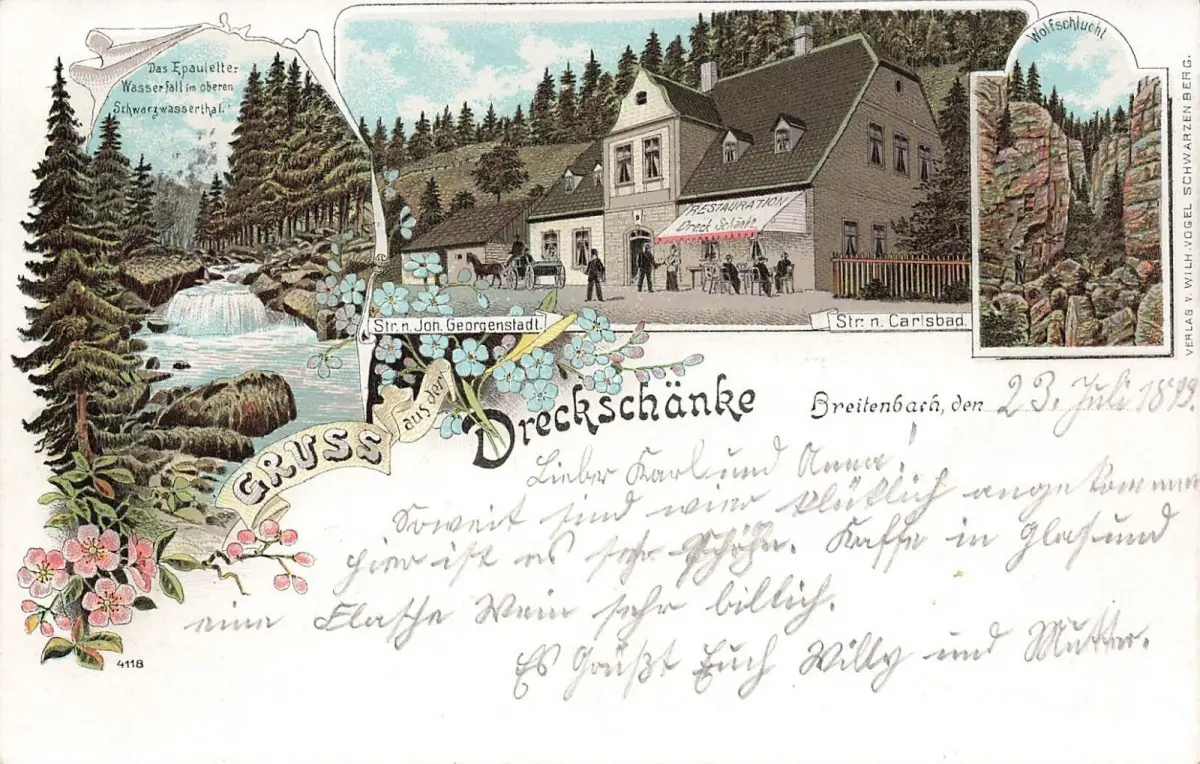 Das Epaulette-
Wasserfall im oberen
Schwarzwasserthal.
Wolfschlucht
RESTAURATION
Dreck Schänke
Str. n. Joh. Georgenstadt.
Str. n. Carlsbad.
VERLAG v. WILH. VOGEL SCHWARZENBERG.
GRUSS aus der Dreckschänke
Breitenbach, den 23. Juli 189
Lieber Karl und Anna!
Soweit sind wier klüklich angekommen
hier ist es sehr schön. Kaffe in Glas und
eine Flasche Wein sehr billich.
Es Grüßt Euch Willy und Mutter.
4118